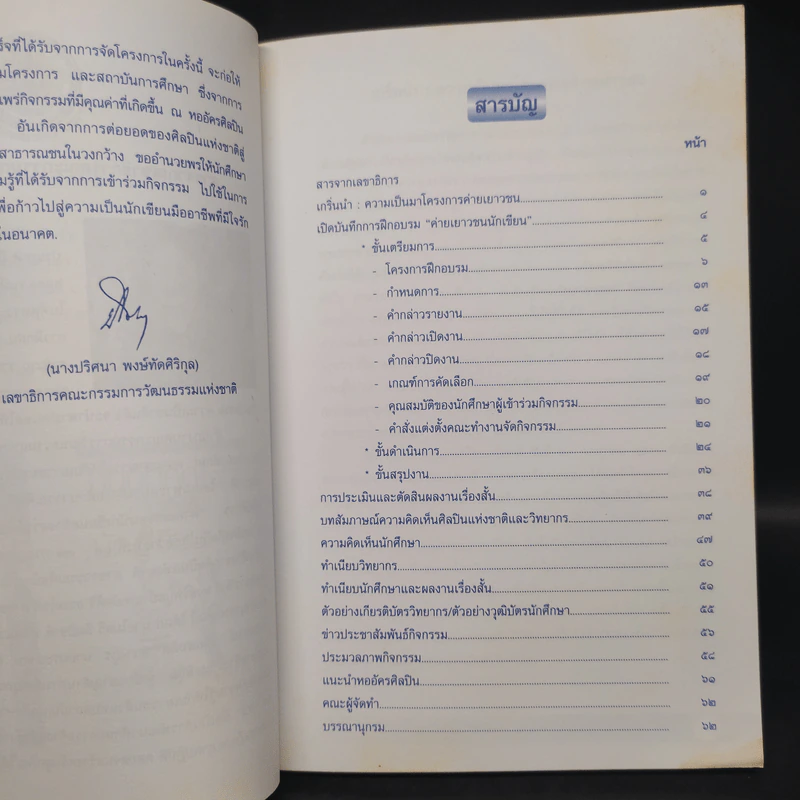 ร็จที่ได้รับจากการจัดโครงการในครั้งนี้ จะก่อให้
มโครงการ และสถาบันการศึกษา ซึ่งจากการ
แพร่กิจกรรมที่มีคุณค่าที่เกิดขึ้น ณ หออัครศิลปิน
อันเกิดจากการต่อยอดของศิลปินแห่งชาติสู่
สาธารณชนในวงกว้าง ขออำนวยพรให้นักศึกษา
มรู้ที่ได้รับจากการเข้าร่วมกิจกรรม ไปใช้ในการ
พื่อก้าวไปสู่ความเป็นนักเขียนมืออาชีพที่มีใจรัก
นอนาคต.
(นางปริศนา พงษ์ทัดศิริกุล)
เลขาธิการคณะกรรมการวัฒนธรรมแห่งชาติ
สารบัญ
หน้า
สารจากเลขาธิการ
เกริ่นนำ : ความเป็นมาโครงการค่ายเยาวชน ๑
เปิดบันทึกการฝึกอบรม "ค่ายเยาวชนนักเขียน" ๔
* ขั้นเตรียมการ ๕
- โครงการฝึกอบรม ๖
- กำหนดการ ๑๓
- คำกล่าวรายงาน ๑๕
- คำกล่าวเปิดงาน ๑๗
- คำกล่าวปิดงาน ๑๘
- เกณฑ์การคัดเลือก ๑๙
- คุณสมบัติของนักศึกษาผู้เข้าร่วมกิจกรรม ๒๐
- คำสั่งแต่งตั้งคณะทำงานจัดกิจกรรม ๒๑
* ขั้นดำเนินการ ๒๔
* ขั้นสรุปงาน ๓๖
การประเมินและตัดสินผลงานเรื่องสั้น ๓๘
บทสัมภาษณ์ความคิดเห็นศิลปินแห่งชาติและวิทยากร ๓๙
ความคิดเห็นนักศึกษา ๔๗
ทำเนียบวิทยากร ๕๐
ทำเนียบนักศึกษาและผลงานเรื่องสั้น ๕๑
ตัวอย่างเกียรติบัตรวิทยากร/ตัวอย่างวุฒิบัตรนักศึกษา ๕๕
ข่าวประชาสัมพันธ์กิจกรรม ๕๖
ประมวลภาพกิจกรรม ๕๘
แนะนำหออัครศิลปิน ๖๑
คณะผู้จัดทำ ๖๒
บรรณานุกรม ๖๒